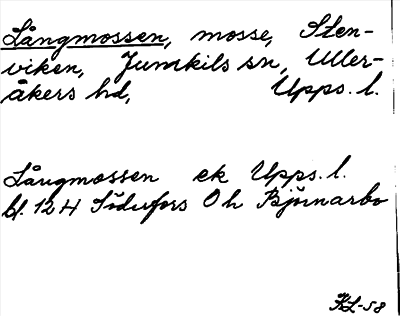 Långmossen, mosse, Sten-
viken, Jumkils sn, Uller-
åkers hd, Upps. l.
Långmossen ek Upps. l.
bl. 124 Söderfors Oh Björnarbo
KL-58